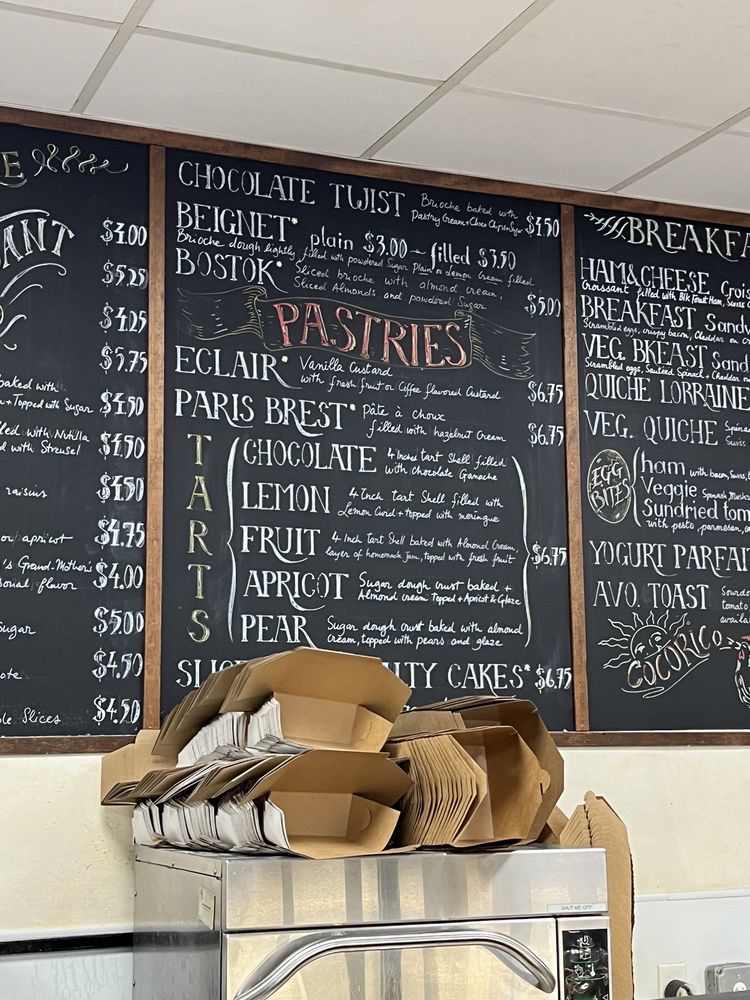 ANT
$4.00
$5.25
$4.25
$5.75
baked with
+ Topped with Sugar $4.50
filled with Nutella $4.50
d with Streusel
raisins $4.50
or apricot $4.75
's Grand-Mother's $4.00
flavor
Sugar $5.00
$4.50
Slices $4.50
CHOCOLATE TWIST Brioche baked with $4.50
Pastry Cream +
BEIGNET* plain $3.00 — filled $3.50
Brioche dough lightly filled with powdered Sugar Plain or Lemon Cream filled
BOSTOK* Sliced brioche with almond cream,
Sliced Almonds and powdered Sugar $5.00
PASTRIES
ECLAIR* Vanilla Custard
with fresh fruit or Coffee flavored Custard $6.75
PARIS BREST* Pâte à choux
filled with hazelnut Cream $6.75
TARTS
CHOCOLATE 4 Inches tart Shell filled
with Chocolate Ganache
LEMON 4 Inch tart Shell filled with
Lemon Curd + topped with meringue
FRUIT 4 Inch Tart Shell baked with Almond Cream,
layer of homemade Jam, topped with fresh fruit $6.75
APRICOT Sugar dough crust baked +
Almond cream Topped + Apricot & Glaze
PEAR Sugar dough crust baked with almond
cream, topped with pears and glaze
CAKES* $6.75
HAM & CHEESE
Croissant filled with Blk Forest Ham,
BREAKFAST
Scrambled eggs, crispy bacon, Cheddar on
VEG. BKEAST
Scrambled eggs, Sauteed Spinach + Cheddar on
QUICHE LORRAINE
VEG. QUICHE
EGG BITES
ham with bacon,
Veggie Spinach
Sundried
with pesto, parmesan,
YOGURT
AVO. TOAST
COCORICO
SHUT ME OFF!